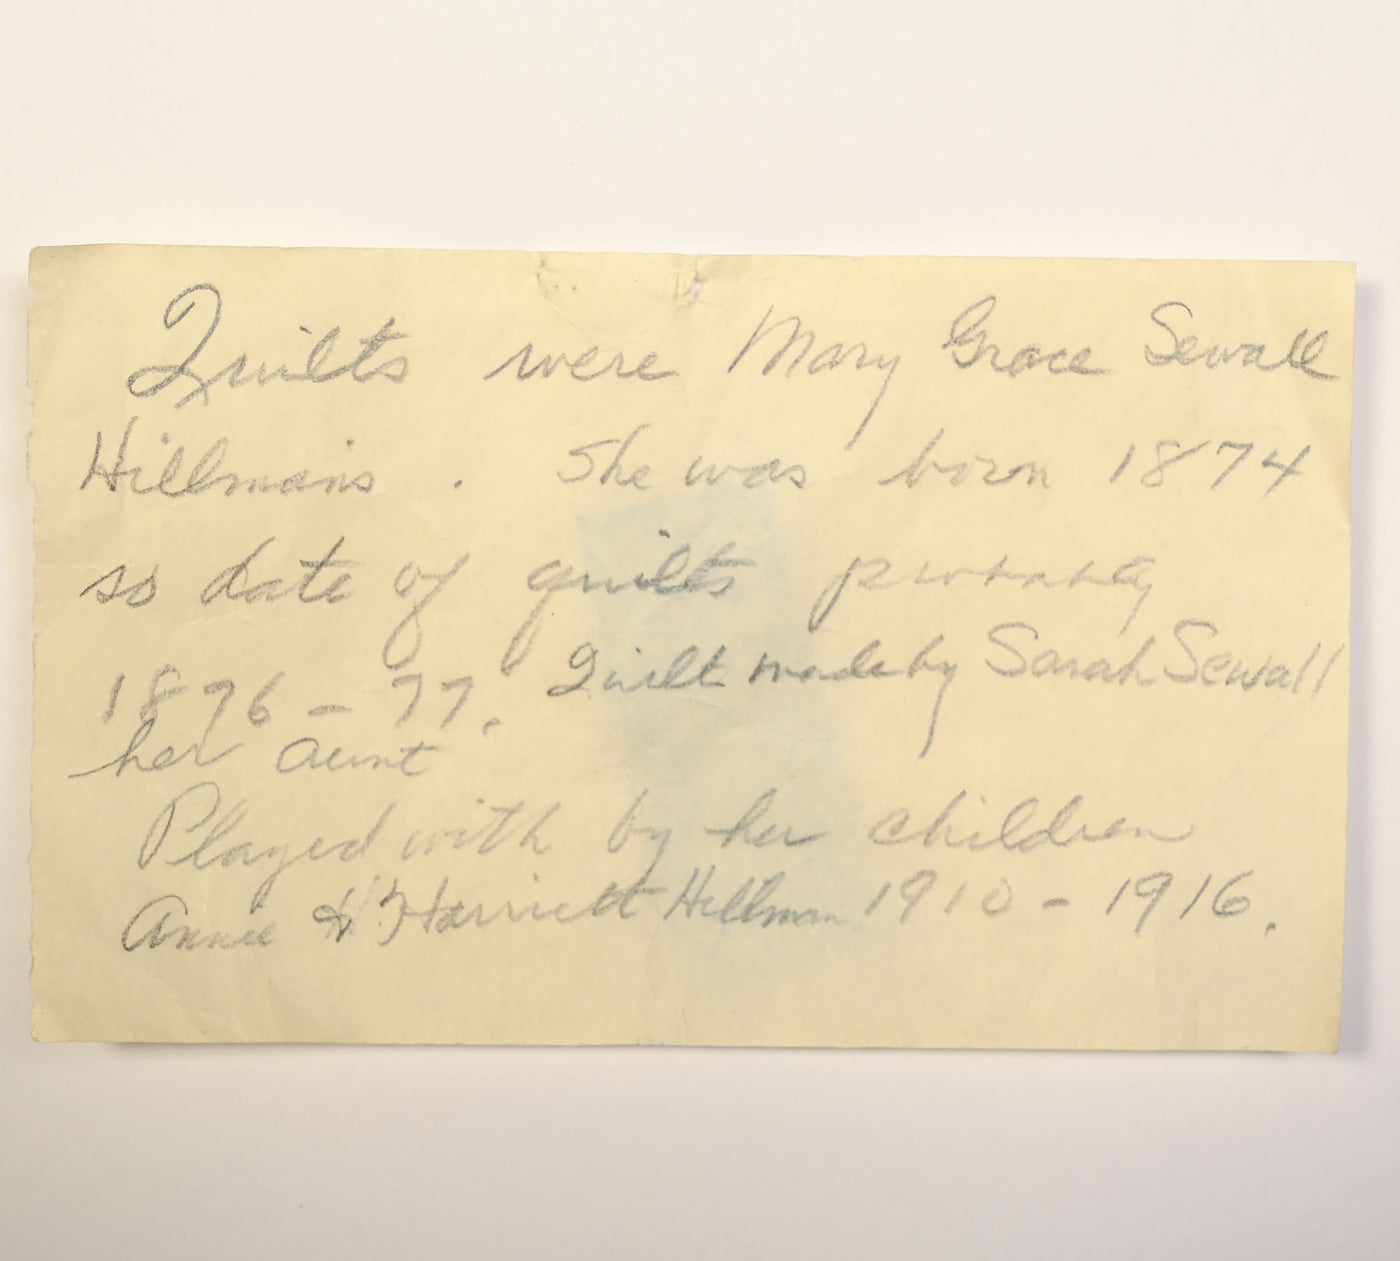 Quilts were Mary Grace Sewall
Hillman's . She was born 1874
so date of quilts probably
1876 - 77. Quilt made by Sarah Sewall
her aunt
Played with by her children
Annie & Harriett Hillman 1910 - 1916.